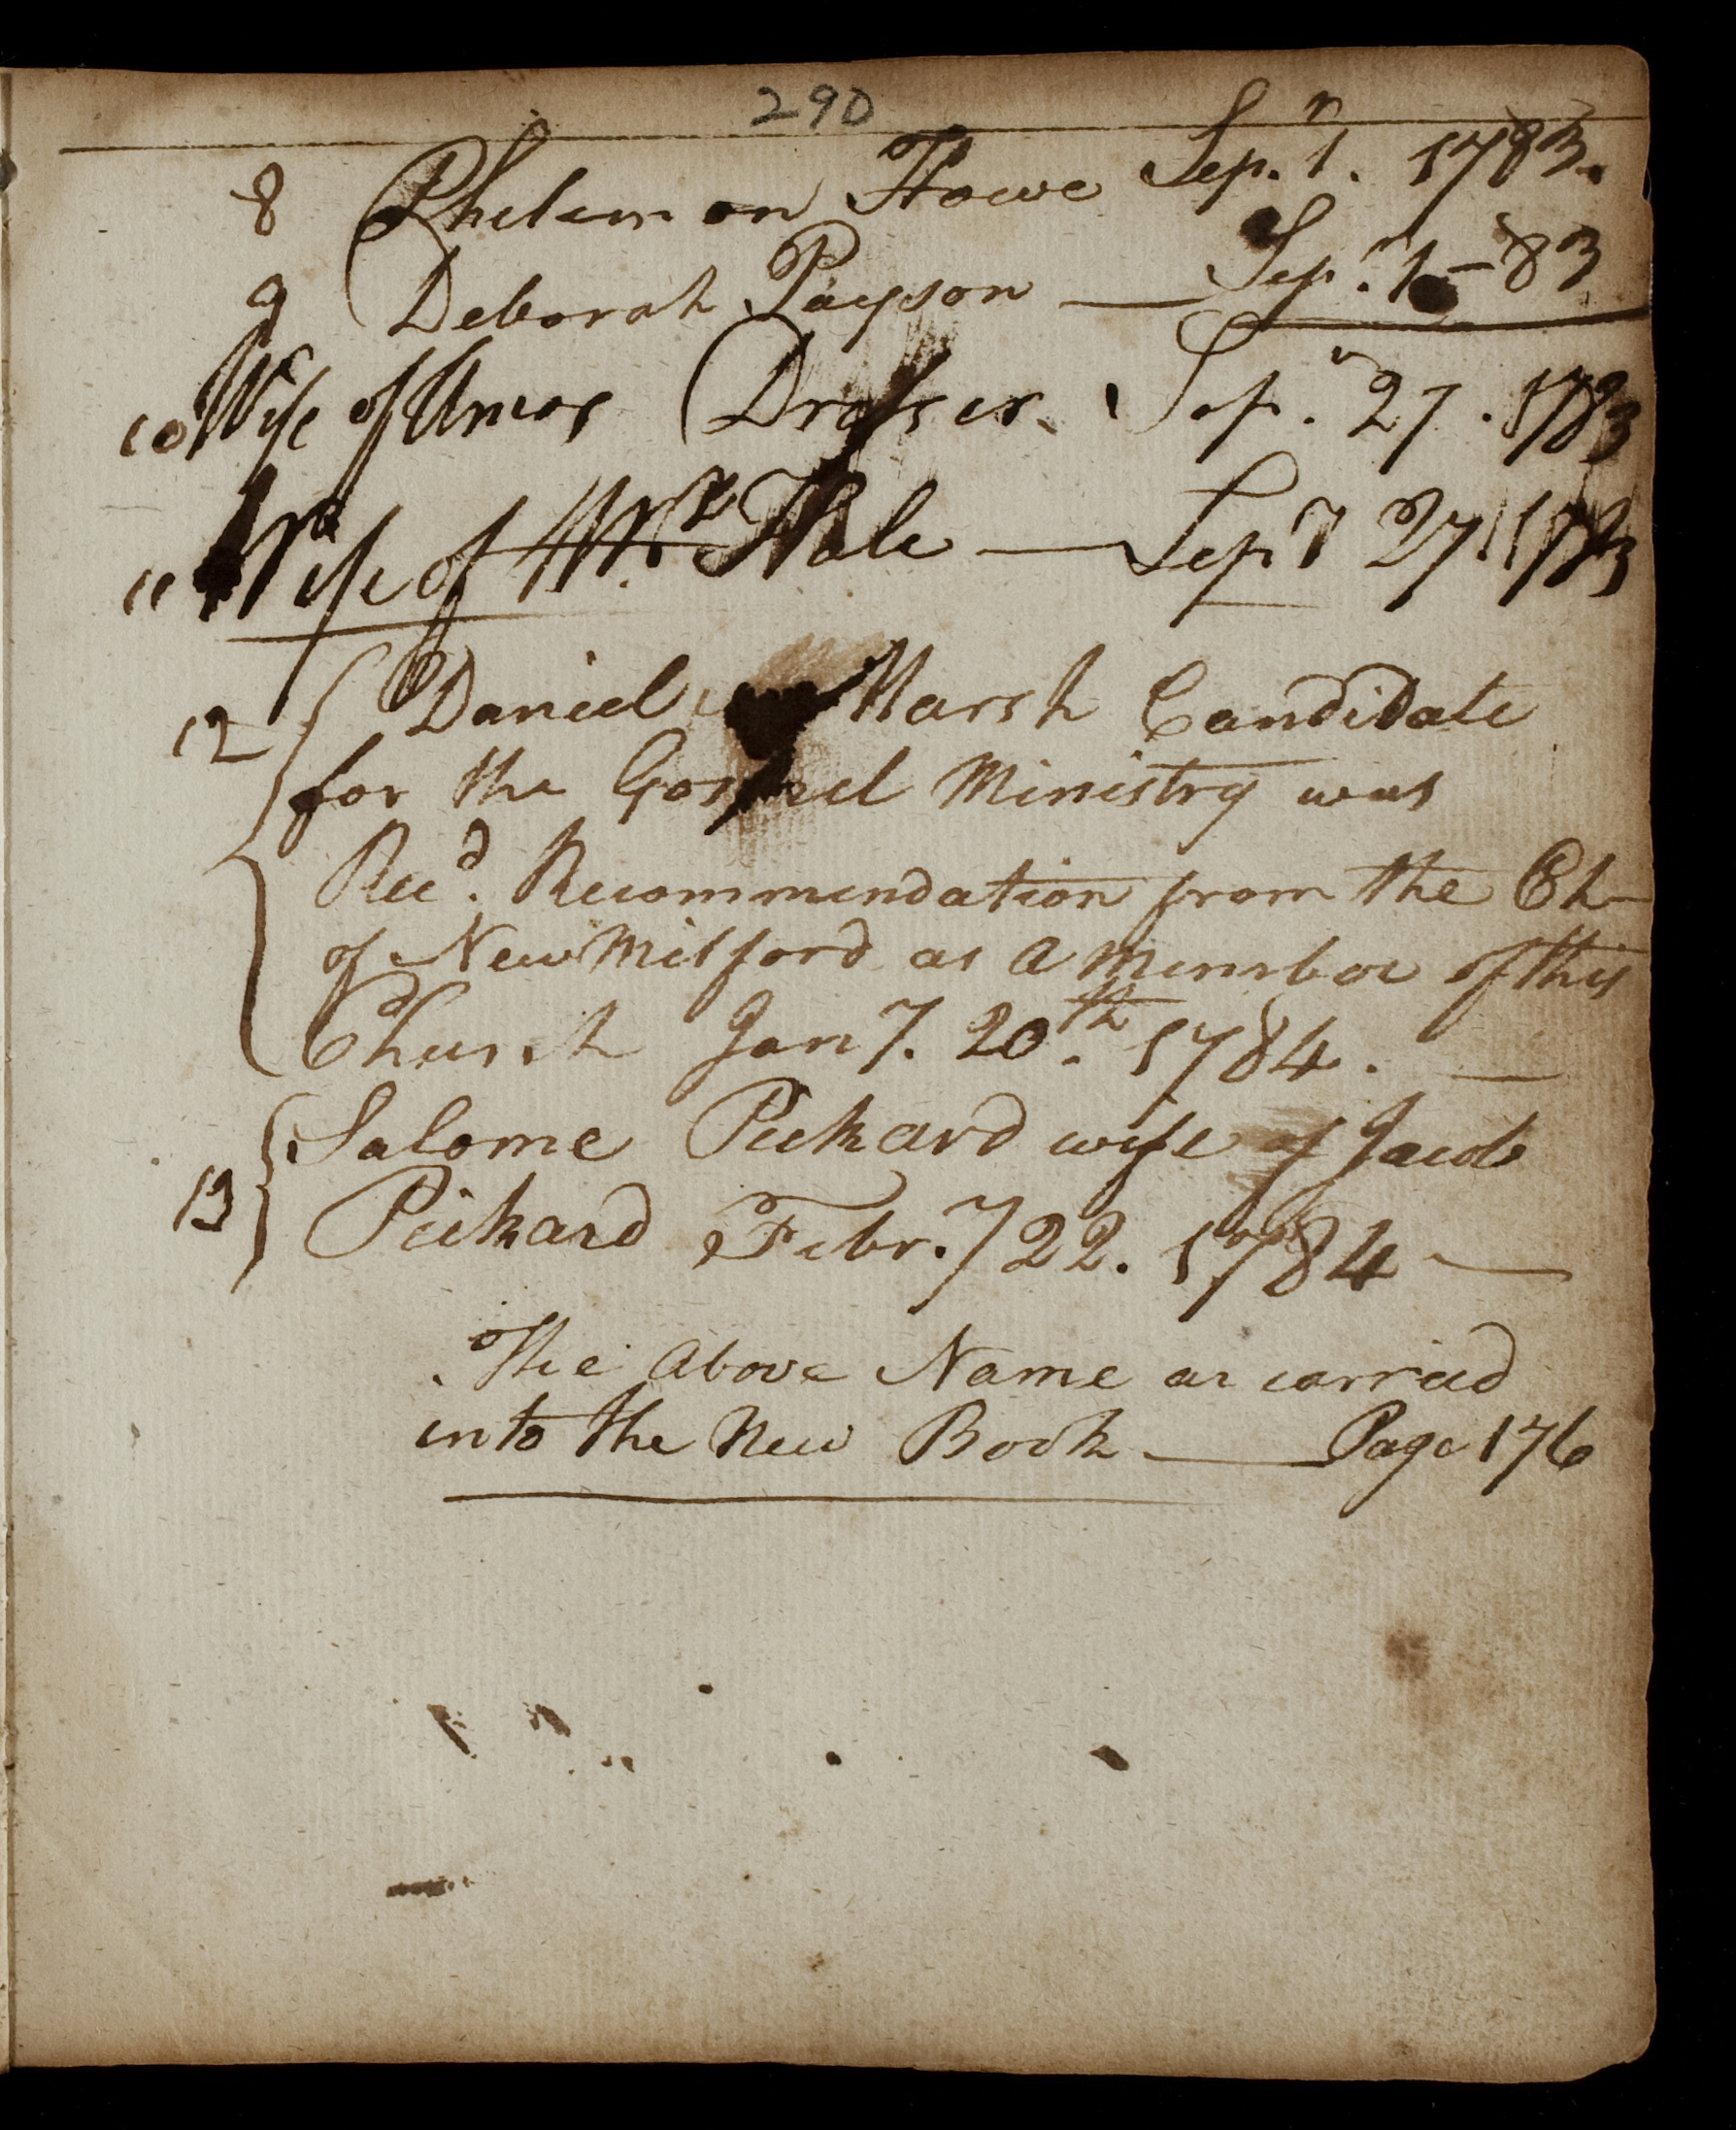 290
8 Philemon Howe Sep.r 1. 1783.
9 Deborah Payson — Sep.r 1 - 83
10 Wife of Amos Dresser. Sep.r 27. 1783
11 Wife of Mr. Hale — Sepr 27. 1783
12 Daniel Marsh Candidate
for the Gospel Ministry was
Recd. Recommendation from the Ch-
of New Milford as a Member of this
Church Jany. 20th. 1784. —
Salome Pickard wife of Jacob
13 Pickard Febr.y 22. 1784 —
The above Name ar carried
into the New Book — Page 176